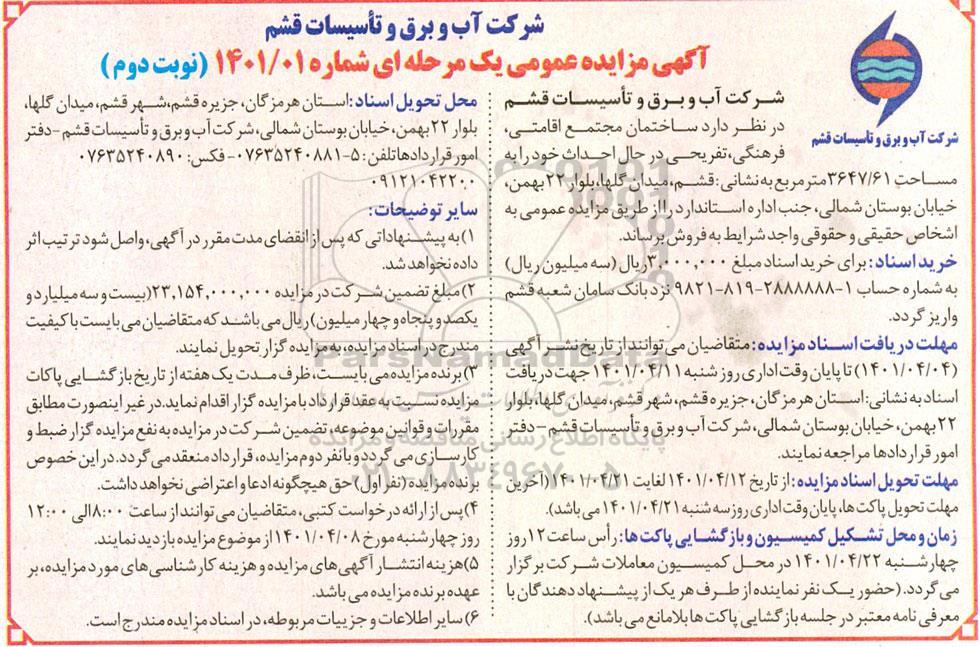 شرکت آب و برق و تأسیسات قشم
آگهی مزایده عمومی یک مرحله ای شماره ۱۴۰۱/۰۱ (نوبت دوم)
شرکت آب و برق و تأسیسات قشم
شرکت آب و برق و تأسیسات قشم
در نظر دارد ساختمان مجتمع اقامتی،
فرهنگی، تفریحی در حال احداث خود را به
مساحت ۳۶۴۷/۶۱ مترمربع به نشانی: قشم، میدان گلها، بلوار ۲۲ بهمن،
خیابان بوستان شمالی، جنب اداره استاندارد را از طریق مزایده عمومی به
اشخاص حقیقی و حقوقی واجد شرایط به فروش برساند.
خرید اسناد: برای خرید اسناد مبلغ ۳,۰۰۰,۰۰۰ ریال (سه میلیون ریال)
به شماره حساب ۱-۲۸۸۸۸۸۸-۸۱۹-۹۸۲۱ نزد بانک سامان شعبه قشم
واریز گردد.
مهلت دریافت اسناد مزایده: متقاضیان می توانند از تاریخ نشر آگهی
(۱۴۰۱/۰۴/۰۴) تا پایان وقت اداری روز شنبه ۱۴۰۱/۰۴/۱۱ جهت دریافت
اسناد به نشانی: استان هرمزگان، جزیره قشم، شهر قشم، میدان گلها، بلوار
۲۲ بهمن، خیابان بوستان شمالی، شرکت آب و برق و تأسیسات قشم - دفتر
امور قراردادها مراجعه نمایند.
مهلت تحویل اسناد مزایده: از تاریخ ۱۴۰۱/۰۴/۱۲ لغایت ۱۴۰۱/۰۴/۲۱ (آخرین
مهلت تحویل پاکت ها، پایان وقت اداری روز سه شنبه ۱۴۰۱/۰۴/۲۱ می باشد).
زمان و محل تشکیل کمیسیون و بازگشایی پاکت ها: رأس ساعت ۱۲ روز
چهارشنبه ۱۴۰۱/۰۴/۲۲ در محل کمیسیون معاملات شرکت برگزار
می گردد. (حضور یک نفر نماینده از طرف هر یک از پیشنهاد دهندگان با
معرفی نامه معتبر در جلسه بازگشایی پاکت ها بلامانع می باشد).
محل تحویل اسناد: استان هرمزگان، جزیره قشم، شهر قشم، میدان گلها،
بلوار ۲۲ بهمن، خیابان بوستان شمالی، شرکت آب و برق و تأسیسات قشم - دفتر
امور قراردادها تلفن: ۵-۰۷۶۳۵۲۴۰۸۸۱ - فکس: ۰۷۶۳۵۲۴۰۸۹۰
۰۹۱۲۱۰۴۲۲۰۰
سایر توضیحات:
۱) به پیشنهاداتی که پس از انقضای مدت مقرر در آگهی، واصل شود ترتیب اثر
داده نخواهد شد.
۲) مبلغ تضمین شرکت در مزایده ۲۳,۱۵۴,۰۰۰,۰۰۰ (بیست و سه میلیارد و
یکصد و پنجاه و چهار میلیون) ریال می باشد که متقاضیان می بایست با کیفیت
مندرج در اسناد مزایده، به مزایده گزار تحویل نمایند.
۳) برنده مزایده می بایست، ظرف مدت یک هفته از تاریخ بازگشایی پاکات
مزایده نسبت به عقد قرارداد با مزایده گزار اقدام نماید. در غیر اینصورت مطابق
مقررات و قوانین موضوعه، تضمین شرکت در مزایده به نفع مزایده گزار ضبط و
کارسازی می گردد و با نفر دوم مزایده، قرارداد منعقد می گردد. در این خصوص
برنده مزایده (نفر اول) حق هیچگونه ادعا و اعتراضی نخواهد داشت.
۴) پس از ارائه درخواست کتبی، متقاضیان می توانند از ساعت ۸:۰۰ الی ۱۲:۰۰
روز چهارشنبه مورخ ۱۴۰۱/۰۴/۰۸ از موضوع مزایده بازدید نمایند.
۵) هزینه انتشار آگهی های مزایده و هزینه کارشناسی های مورد مزایده، بر
عهده برنده مزایده می باشد.
۶) سایر اطلاعات و جزییات مربوطه، در اسناد مزایده مندرج است.
ParsNamadData
پایگاه اطلاع رسانی مناقصه و مزایده
۰۲۱-۸۸۳۴۹۶۷۰-۵